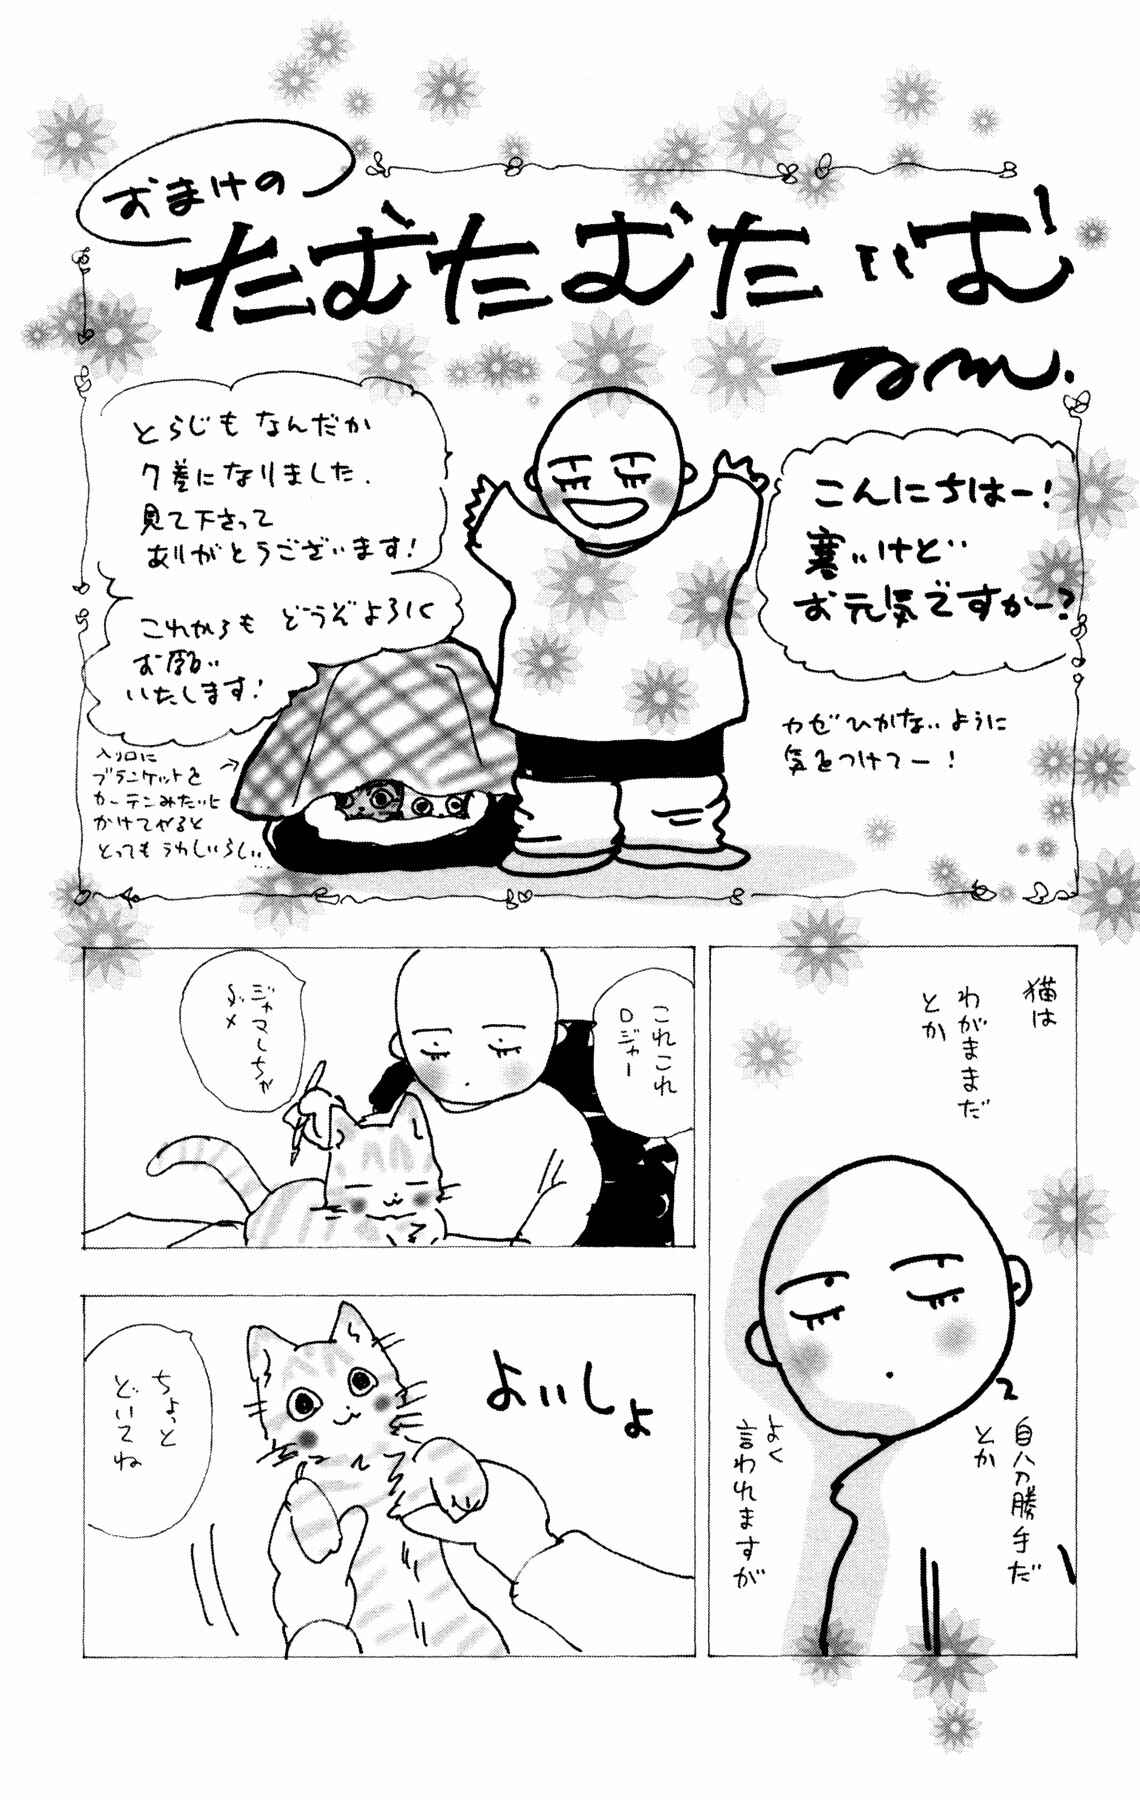 おまけの
たむたむたいむ
こんにちはー!
寒いけど
お元気ですかー?
カゼひかないように
気をつけてー!
とらじもなんだか
7巻になりました。
見て下さって
ありがとうございます!
これからもどうぞよろしく
お願い
いたします!
入り口に
ブランケットを
カーテンみたいに
かけてやると
とってもうれしいらしい…
猫は
わがままだ
とか
自分勝手だ
とか
よく
言われますが
これこれ
ロジャー
ジャマしちゃ
ダメ
よいしょ
ちょっと
どいてね